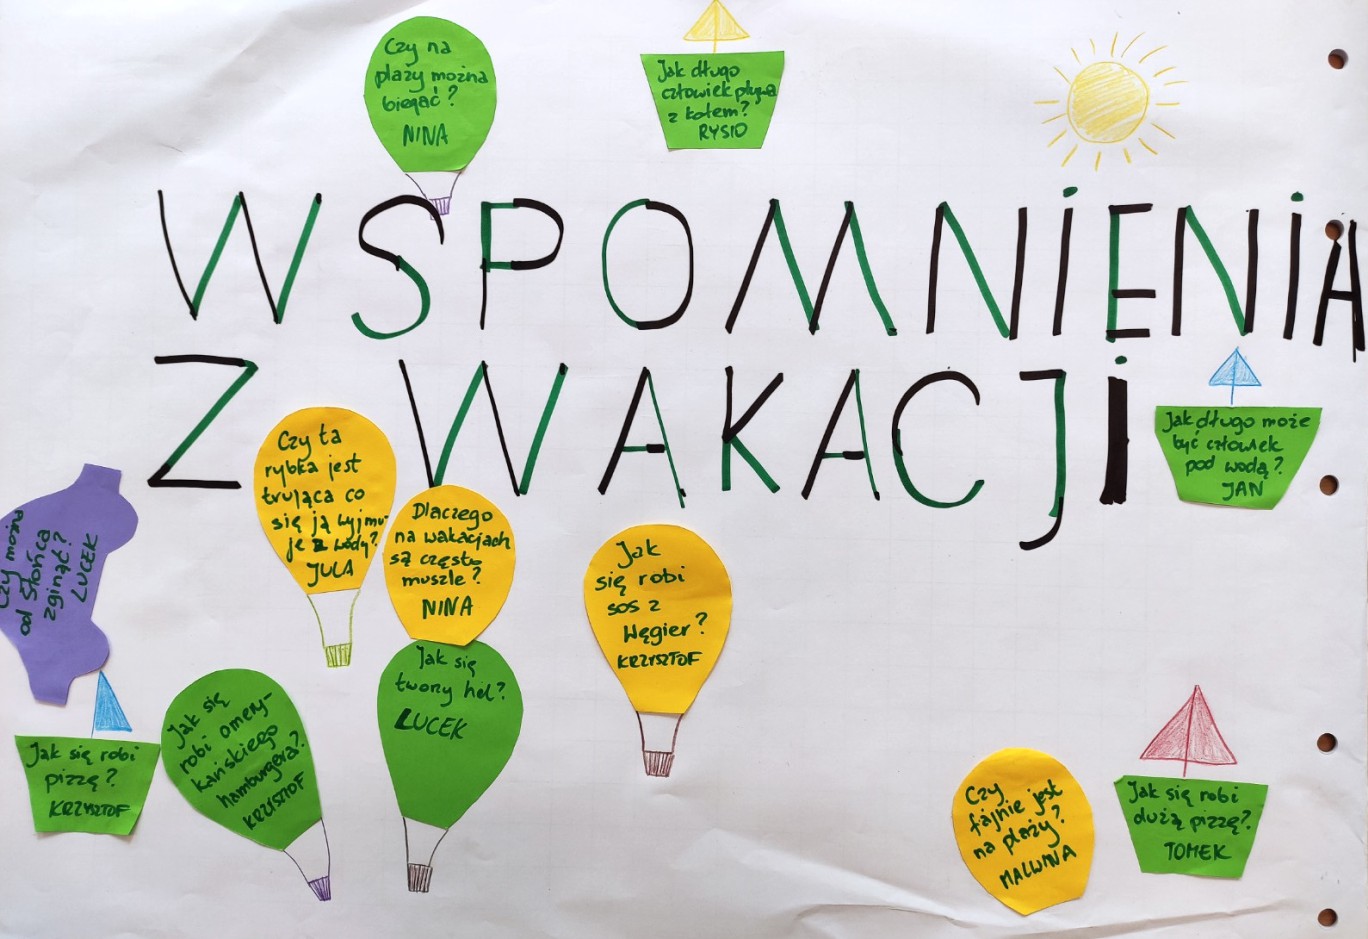 Czy na
plaży można
biegać?
NINA
Jak długo
człowiek pływa
z kołem?
RYSIO
WSPOMNIENIA
Z WAKACJI
Jak długo może
być człowiek
pod wodą?
JAN
Czy ta
rybka jest
trująca co
się ją wyjmu-
je z wody?
JULA
Dlaczego
na wakacjach
są często
muszle?
NINA
Jak
się robi
sos z
Węgier?
KRZYSZTOF
Czy można
od słońca
zginąć?
LUCEK
Jak się
tworzy hel?
LUCEK
Jak się
robi amery-
kańskiego
hamburgera?
KRZYSZTOF
Jak się robi
pizzę?
KRZYSZTOF
Czy
fajnie jest
na plaży?
MALWINA
Jak się robi
dużą pizzę?
TOMEK